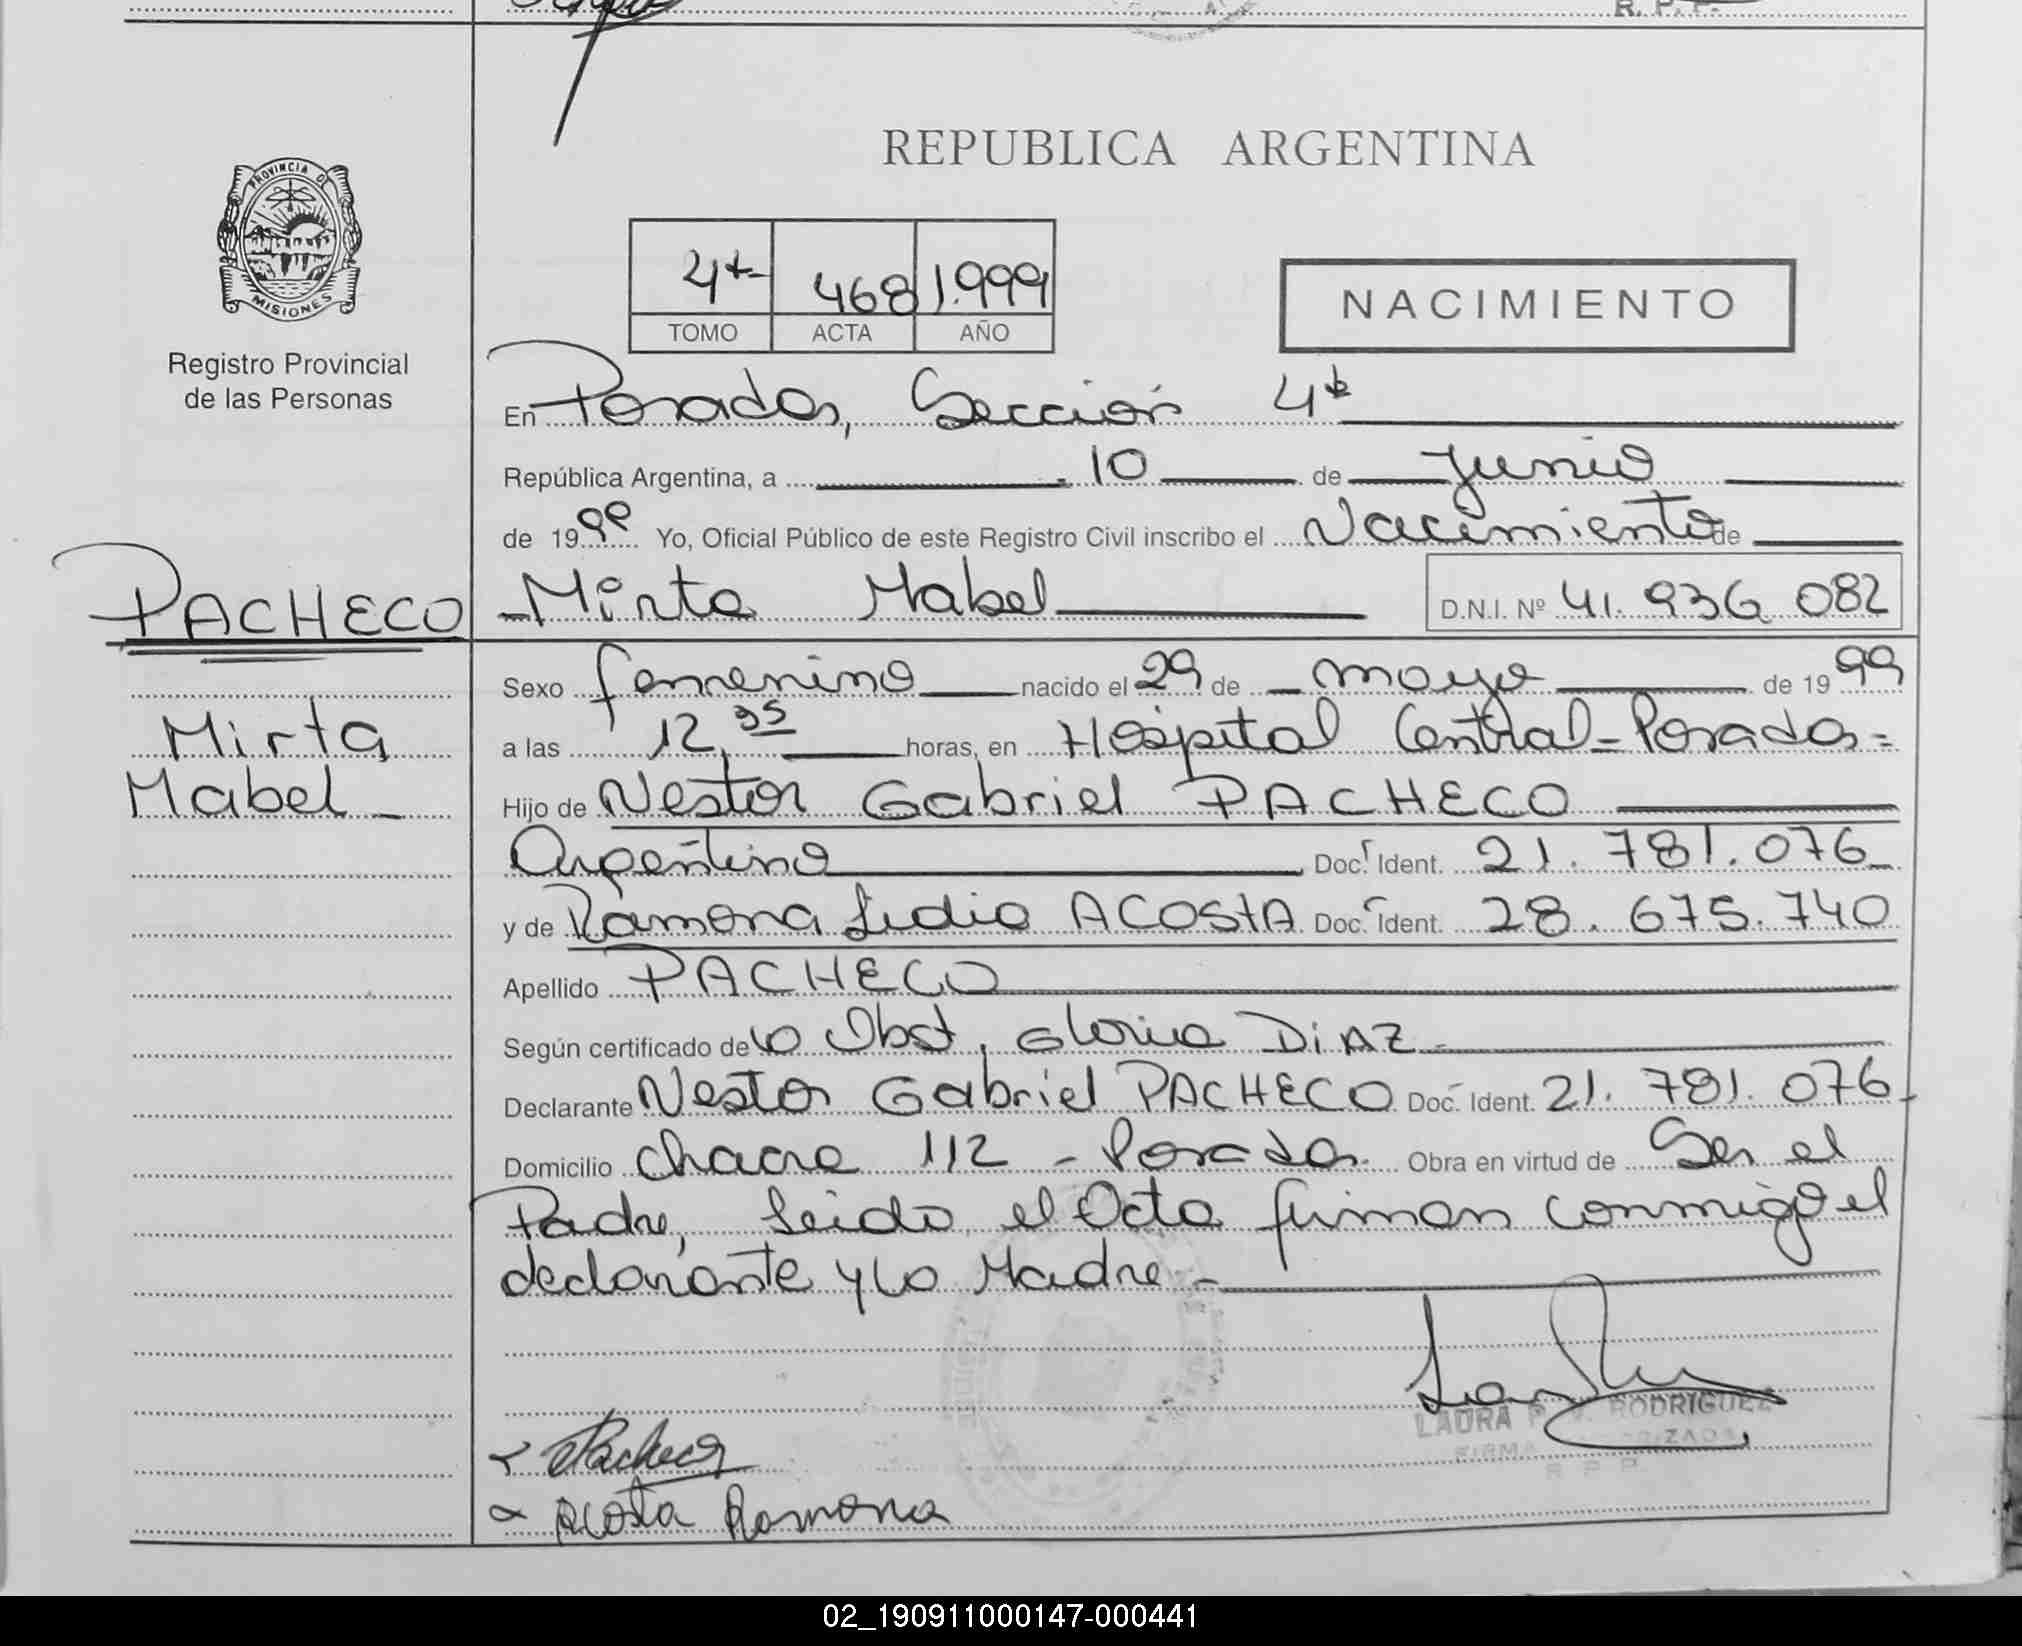 R. P. P.
REPUBLICA ARGENTINA
PROVINCIA DE
MISIONES
Registro Provincial
de las Personas
4ta 468 1.999
TOMO ACTA AÑO
NACIMIENTO
En Posadas, Sección 4ta
República Argentina, a 10 de Junio
de 1999 Yo, Oficial Público de este Registro Civil inscribo el Nacimiento de
PACHECO Mirta Mabel D.N.I. Nº 41.936 082
Sexo femenino nacido el 29 de mayo de 1999
Mirta a las 12,35 horas, en Hospital Central - Posadas =
Mabel - Hijo de Nestor Gabriel PACHECO
Argentino Doc. Ident. 21.781.076
y de Ramona Lidia ACOSTA Doc. Ident. 28.675.740
Apellido PACHECO
Según certificado de la Obst, Gloria DiAZ -
Declarante Nestor Gabriel PACHECO Doc. Ident. 21.781.076
Domicilio Chacra 112 - Posadas. Obra en virtud de Ser el
Padre, Leida el Acta firman conmigo el
declarante y la Madre -
LAURA RODRIGUEZ
FIRMA AUTORIZADA
R P P
Pacheco
Acosta Ramona
02_190911000147-000441